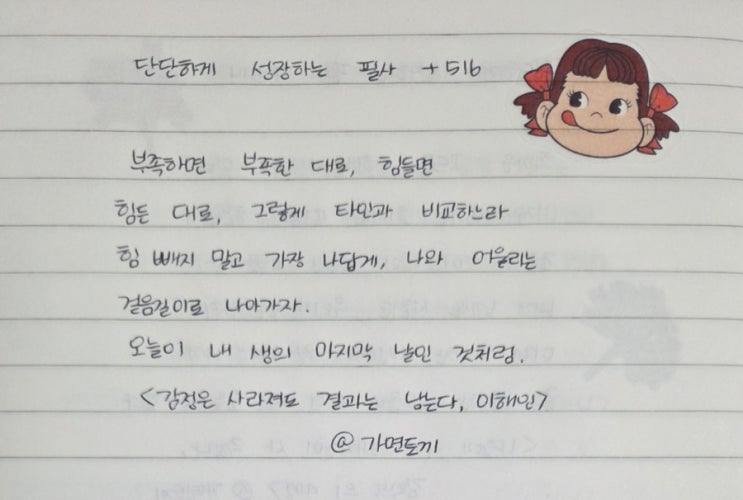 단단하게 성장하는 필사 +516
부족하면 부족한 대로, 힘들면
힘든 대로, 그렇게 타인과 비교하느라
힘 빼지 말고 가장 나답게, 나와 어울리는
걸음길이로 나아가자.
오늘이 내 생의 마지막 날인 것처럼.
<감정은 사라져도 결과는 남는다, 이해인>
@ 가면토끼